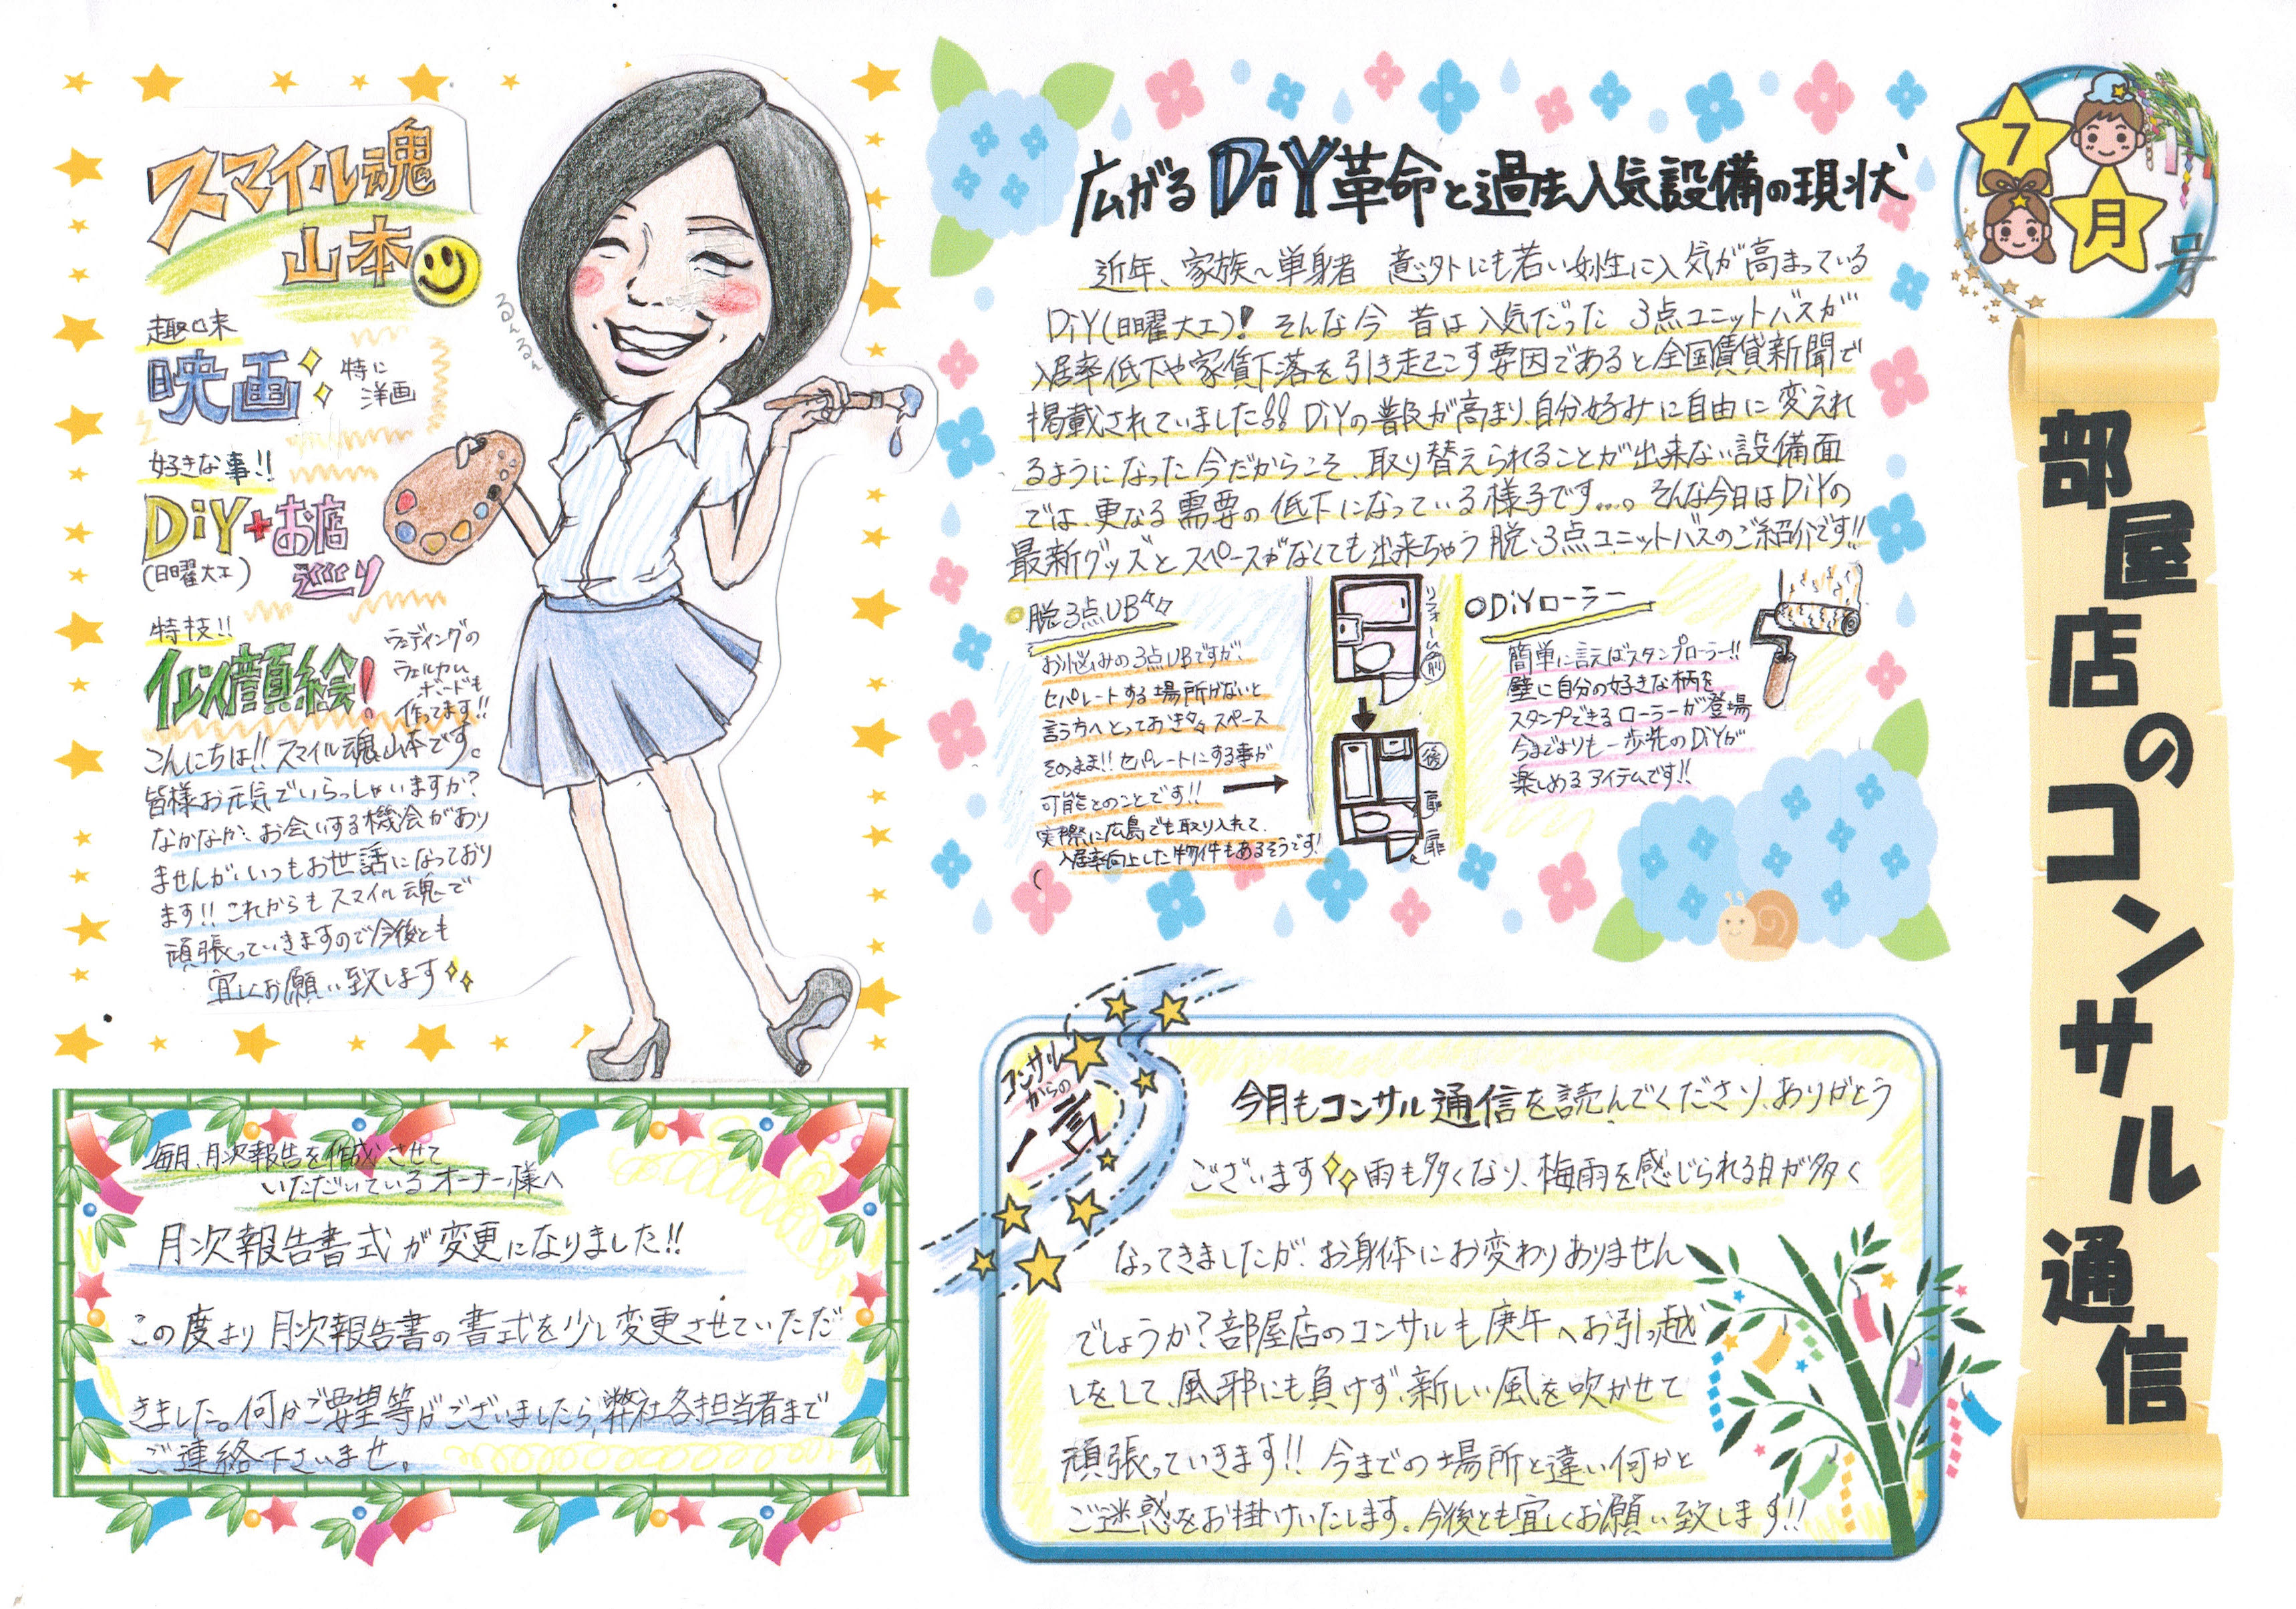 7
月
号
部屋店のコンサル通信
広がるDiY革命と過去人気設備の現状
近年、家族〜単身者 意外にも若い女性に人気が高まっている
DiY(日曜大工)! そんな今 昔は人気だった 3点ユニットバスが
入居率低下や家賃下落を引き起こす要因であると全国賃貸新聞で
掲載されていました!! DiYの普及が高まり、自分好みに自由に変えれ
るようになった今だからこそ、取り替えられることが出来ない設備面
では、更なる需要の低下になっている様子です…。そんな今日はDiYの
最新グッズとスペースがなくても出来ちゃう脱、3点ユニットバスのご紹介です!!
脱3点UB
お悩みの3点UBですが、
セパレートする場所がないと
言う方へとっておき スペース
そのまま!! セパレートにする事が
可能とのことです!!
実際に広島でも取り入れて、
入居率向上した物件もあるそうです!
リフォーム前
後
扉
扉
○DiYローラー
簡単に言えばスタンプローラー!!
壁に自分の好きな柄を
スタンプできるローラーが登場
今までよりも一歩先のDiYが
楽しめるアイテムです!!
スマイル魂
山本
る〜る〜
趣味
映画
特に
洋画
好きな事!!
DiY+お店
(日曜大工)
巡り
特技!!
似顔絵!
ウェディングの
ウェルカム
ボードも
作ってます!!
こんにちは!! スマイル魂、山本です。
皆様お元気でいらっしゃいますか?
なかなか、お会いする機会があり
ませんが、いつもお世話になっており
ます!! これからもスマイル魂で
頑張っていきますので今後とも
宜しくお願い致します
コンサル
からの
一言
今月もコンサル通信を読んでくださり、ありがとう
ございます 雨も多くなり、梅雨を感じられる日が多く
なってきましたが、お身体にお変わりありません
でしょうか? 部屋店のコンサルも庚午へお引っ越
しをして、風邪にも負けず、新しい風を吹かせて
頑張っていきます!! 今までの場所と違い何かと
ご迷惑をお掛けいたします。今後とも宜しくお願い致します!!
毎月、月次報告を作成させて
いただいているオーナー様へ
月次報告書式が変更になりました!!
この度より月次報告書の書式を少し変更させていただ
きました。何かご要望等がございましたら、弊社各担当者まで
ご連絡下さいませ。